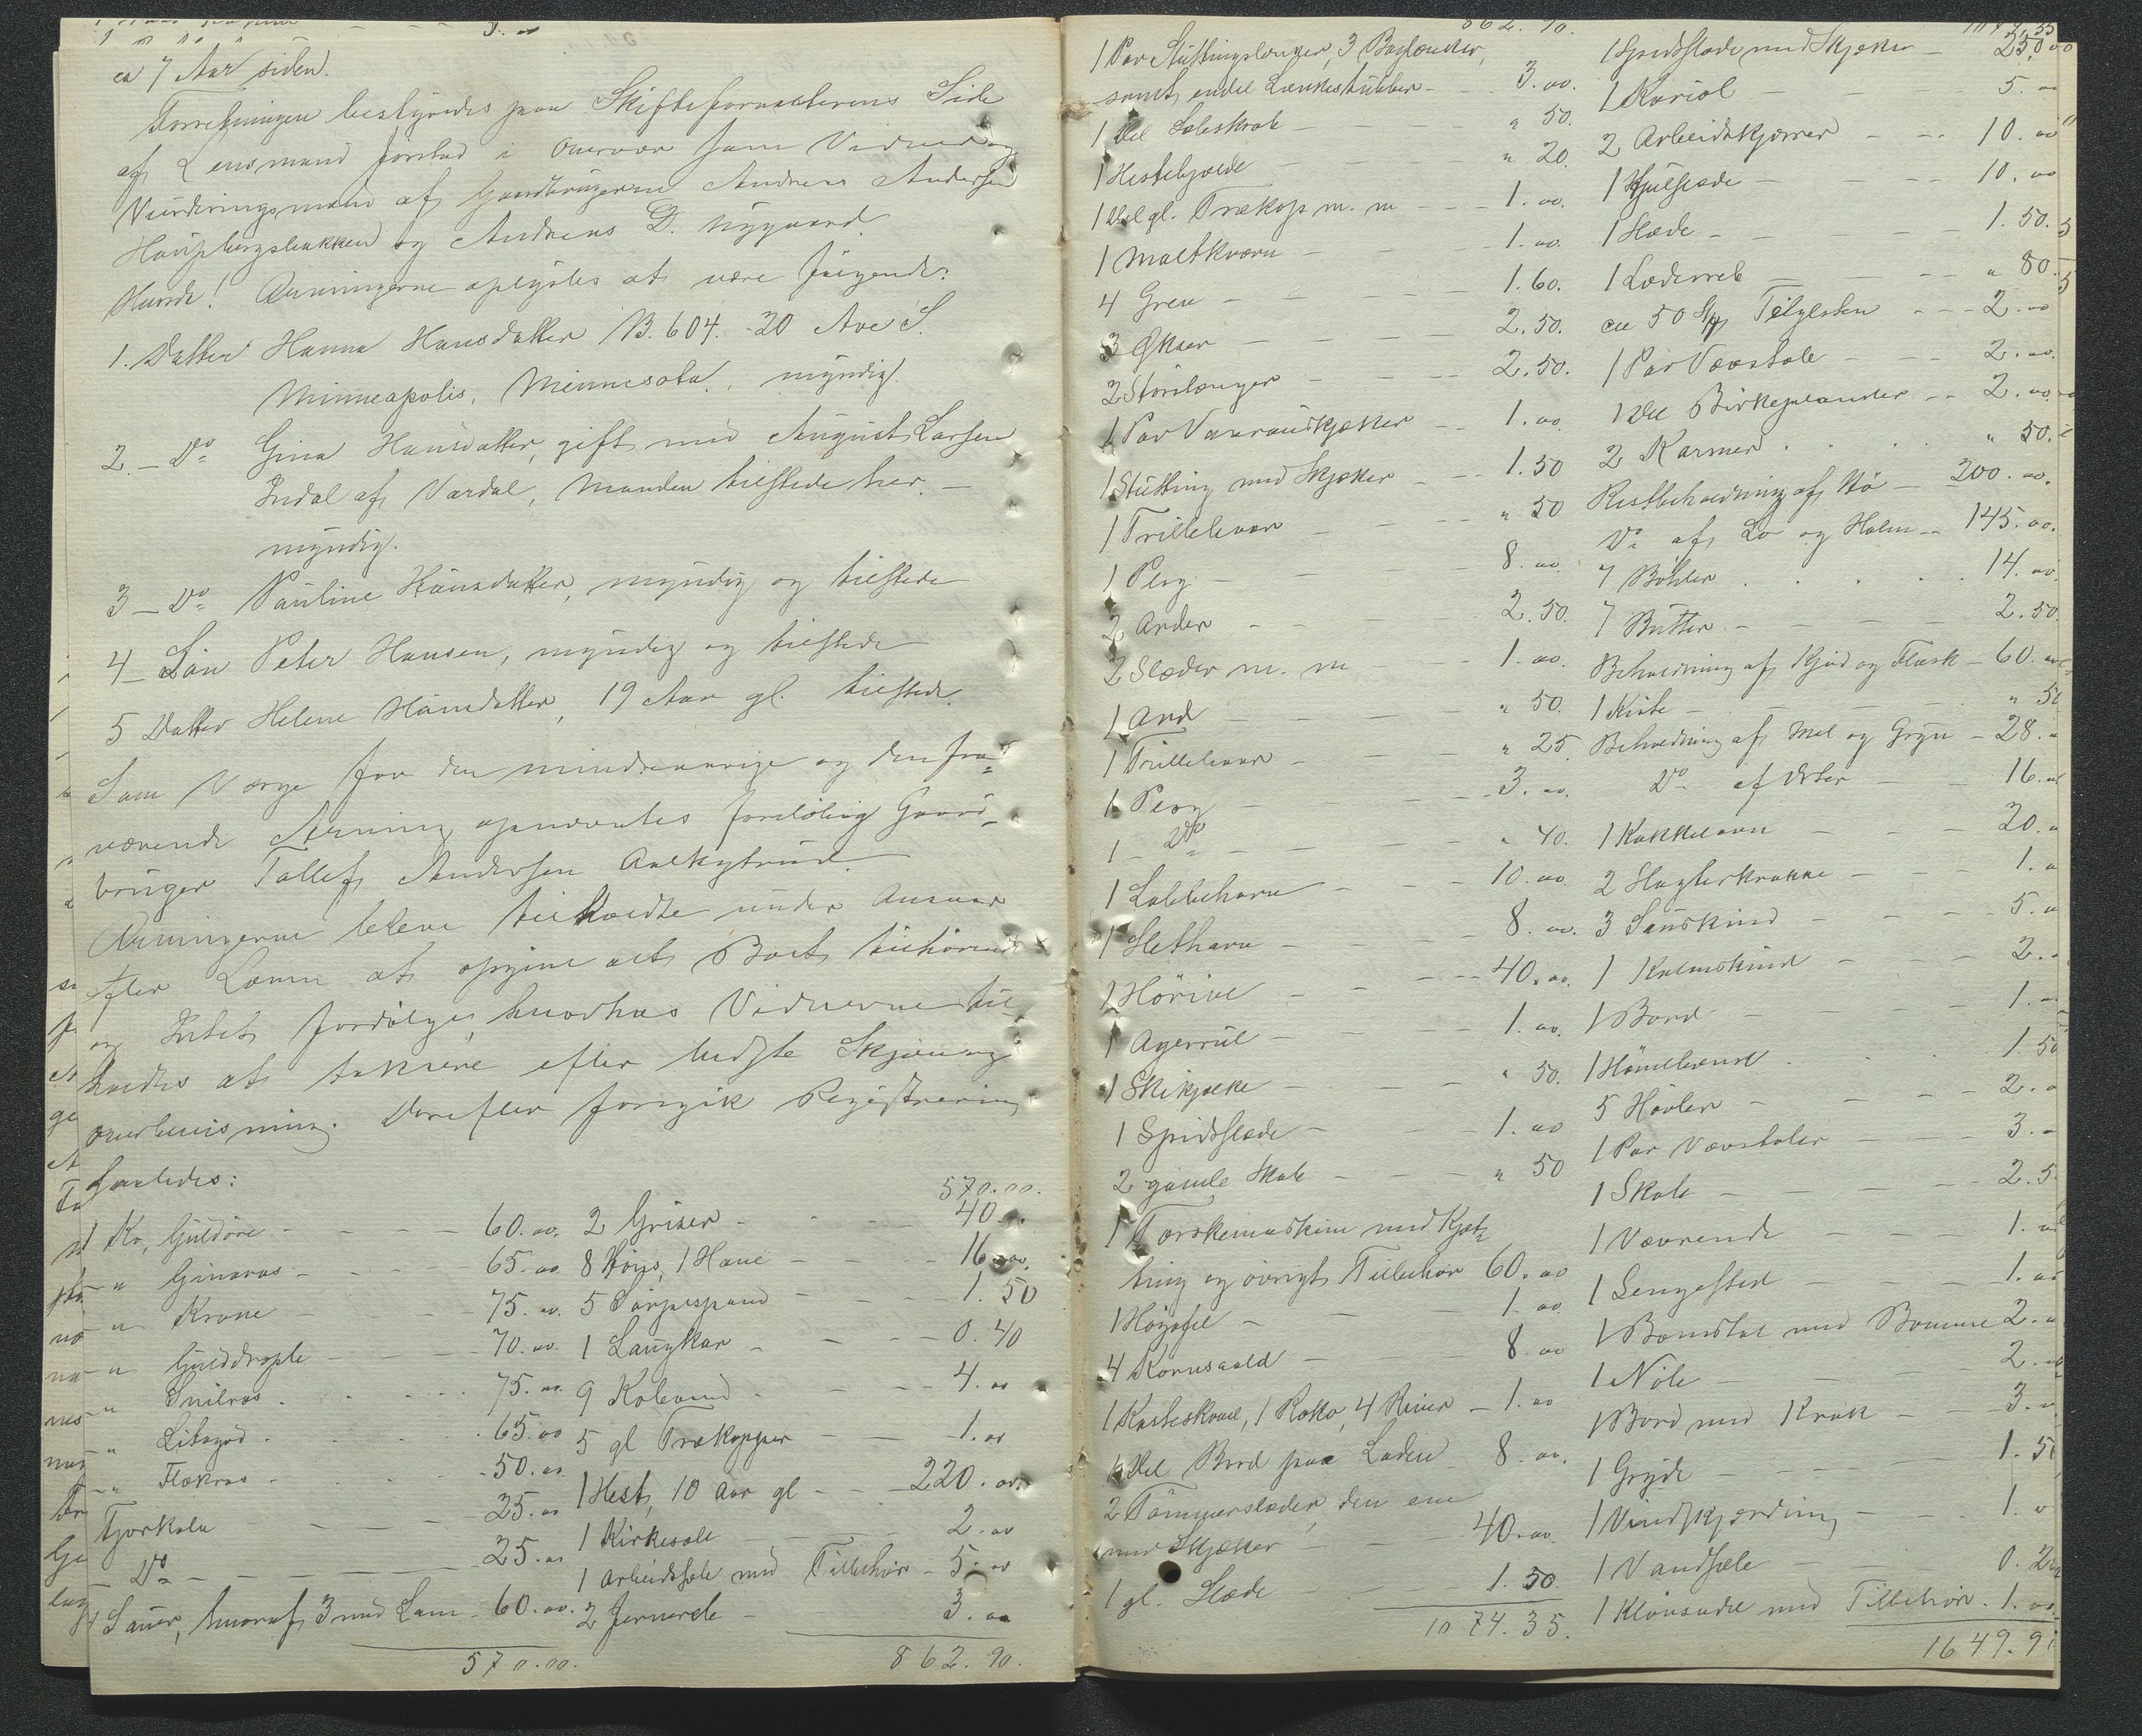 ca 7 Aar siden.
Forretningen bestyredes paa Skifteforvalterens Side
af Lensmand Jørstad i Overvær som Vidner og
Vurderingsmænd af Gaardbrugerne Andreas Andersen
Haugsbergsbakken og Andreas D. Nygaard.
Hunde! Arvingerne oplystes at være følgende:
1. Datter Hanna Hansdatter B. 604. 20 Ave S.
Minneapolis, Minnesota, myndig.
2. – Do Gina Hansdatter, gift med August Larsen
Indal af Værdal, Manden tilstede her. –
myndig.
3 – Do Pauline Hansdatter, myndig og tilstede
4 – Søn Peter Hansen, myndig og tilstede
5 Datter Helene Hansdatter, 19 Aar gl. tilstede.
Som Værge for den mindreaarige og den fra=
værende Arving opnævntes foreløbig Gaard-
bruger Tollef Andersen
Arvingerne bleve tilholdte under Ansvar
efter Loven at opgive alt Boet tilhørende
og Intet fordølge, hvorhos Vidnerne til-
holdtes at taksere efter bedste Skjøn og
overbevisning. Derefter foregik Registrering
saaledes:
570.00.
1 Ko, Guldøre – 60.00. 2 Griser – 40.00
– " Ginaros – 65.00 8 Høns, 1 Hane – 16.00.
– " Krone – 75.00. 5 Sørpespand – 1.50
– " Gulddrople – 70.00. 1 Laugkar – 0.40
– " Snilros . 75.00. 9 Kolvand . 4.00
– " Litagod . 65.00 5 gl Trækopper – 1.00
– " Flekros – 50.00. 1 Hest, 10 Aar gl – 220.00.
Fjorkalv – 25.00 1 Kirkesæle 2.00
Do – 25.00 1 Arbeidssæle med Tilbehør – 5.00
Sauer, hvoraf 3 med Lam – 60.00. 2 – 3.00
570.00. 862.90.
862.90.
1 Par Stuttingslænger, 3 Baglænker,
samt endel Lænkestubber – 3.00.
1 Del Seleskrab – " 50.
1 Hestebjælde – " 20.
1 Del gl. Trækop m. m – 1.00.
1 Maltkværn – 1.00.
4 Grev – 1.60.
3 Økser – 2.50.
2 Størslænger – 2.50.
1 Par Vaaraudskjækker – 1.00.
1 Stutting med Skjæker – 1.50
1 Trillebaar – " 50
1 Plog – 8.00
2 Arder – 2.50.
2 Slæder m. m – 1.00.
1 Ard – " 50.
1 Trillebaar – " 25
1 Plog – 3.00.
1 – Do – " 40.
1 Labbeharv – 10.00.
1 Sletharv – 8.00.
1 Hørive – 40.00.
1 Agerrul – 1.00.
1 Skikjælke – " 50.
1 Spidsslæde – 1.00
2 gamle Skab – " 50
1 Tærskemaskine med Kjæt=
ting og øvrigt Tilbehør 60.00
1 Høgafel – 1.00
4 Kornsaald – 8.00
1 Kasteskovl, 1 Roko, 4 River – 1.00
1 Del Bord paa Laden 8.00.
2 Tømmerslæder, den ene
med Skjæker – 40.00
1 gl. Slæde 1.50.
1074.35.
1 Spidsslæde med Skjæker – 25.00
1 Kariol – 5.00
2 Arbeidskjærrer – 10.00
1 Hjulslæde – 10.00
1 Slæde – 1.50.
1 Læderreb – " 80.
ca 50 Stk Teglsten – 2.00
1 Par Vævstole – 2.00.
1 Del Birkeplanker – 2.00.
2 Karmer . " 50.
Restbeholdning af Hø – 200.00.
Do af Lo og Halm – 145.00.
7 Bøhler . 14.00.
7 Bøtter – 2.50.
Beholdning af Kjød og Flæsk – 60.00
1 Kiste – " 50
Beholdning af Mel og Gryn – 28.
Do af Poteter – 16.00
1 Kakkelovn – 20.
2 Slagterkrakke – 1.
3 Sauskind – 5.
1 Kalveskind – 2.
1 Bord – 1.
1 Høvelbænk . 1.50
5 Høvler – 2.
1 Par Vævstoler – 3.
1 Skab – 2.5
1 Vævrende – 1.
1 Sengested – 1.00
1 Bomstol med Bomme 2.
1 Nøle – 2.
1 Bord med Krak – 3.
1 Gryde – 1.5
1 Vindskjærding – 1.
1 Vandsæle 0.2
1 Kløvsadel med Tilbehør . 1.00.
1649.9